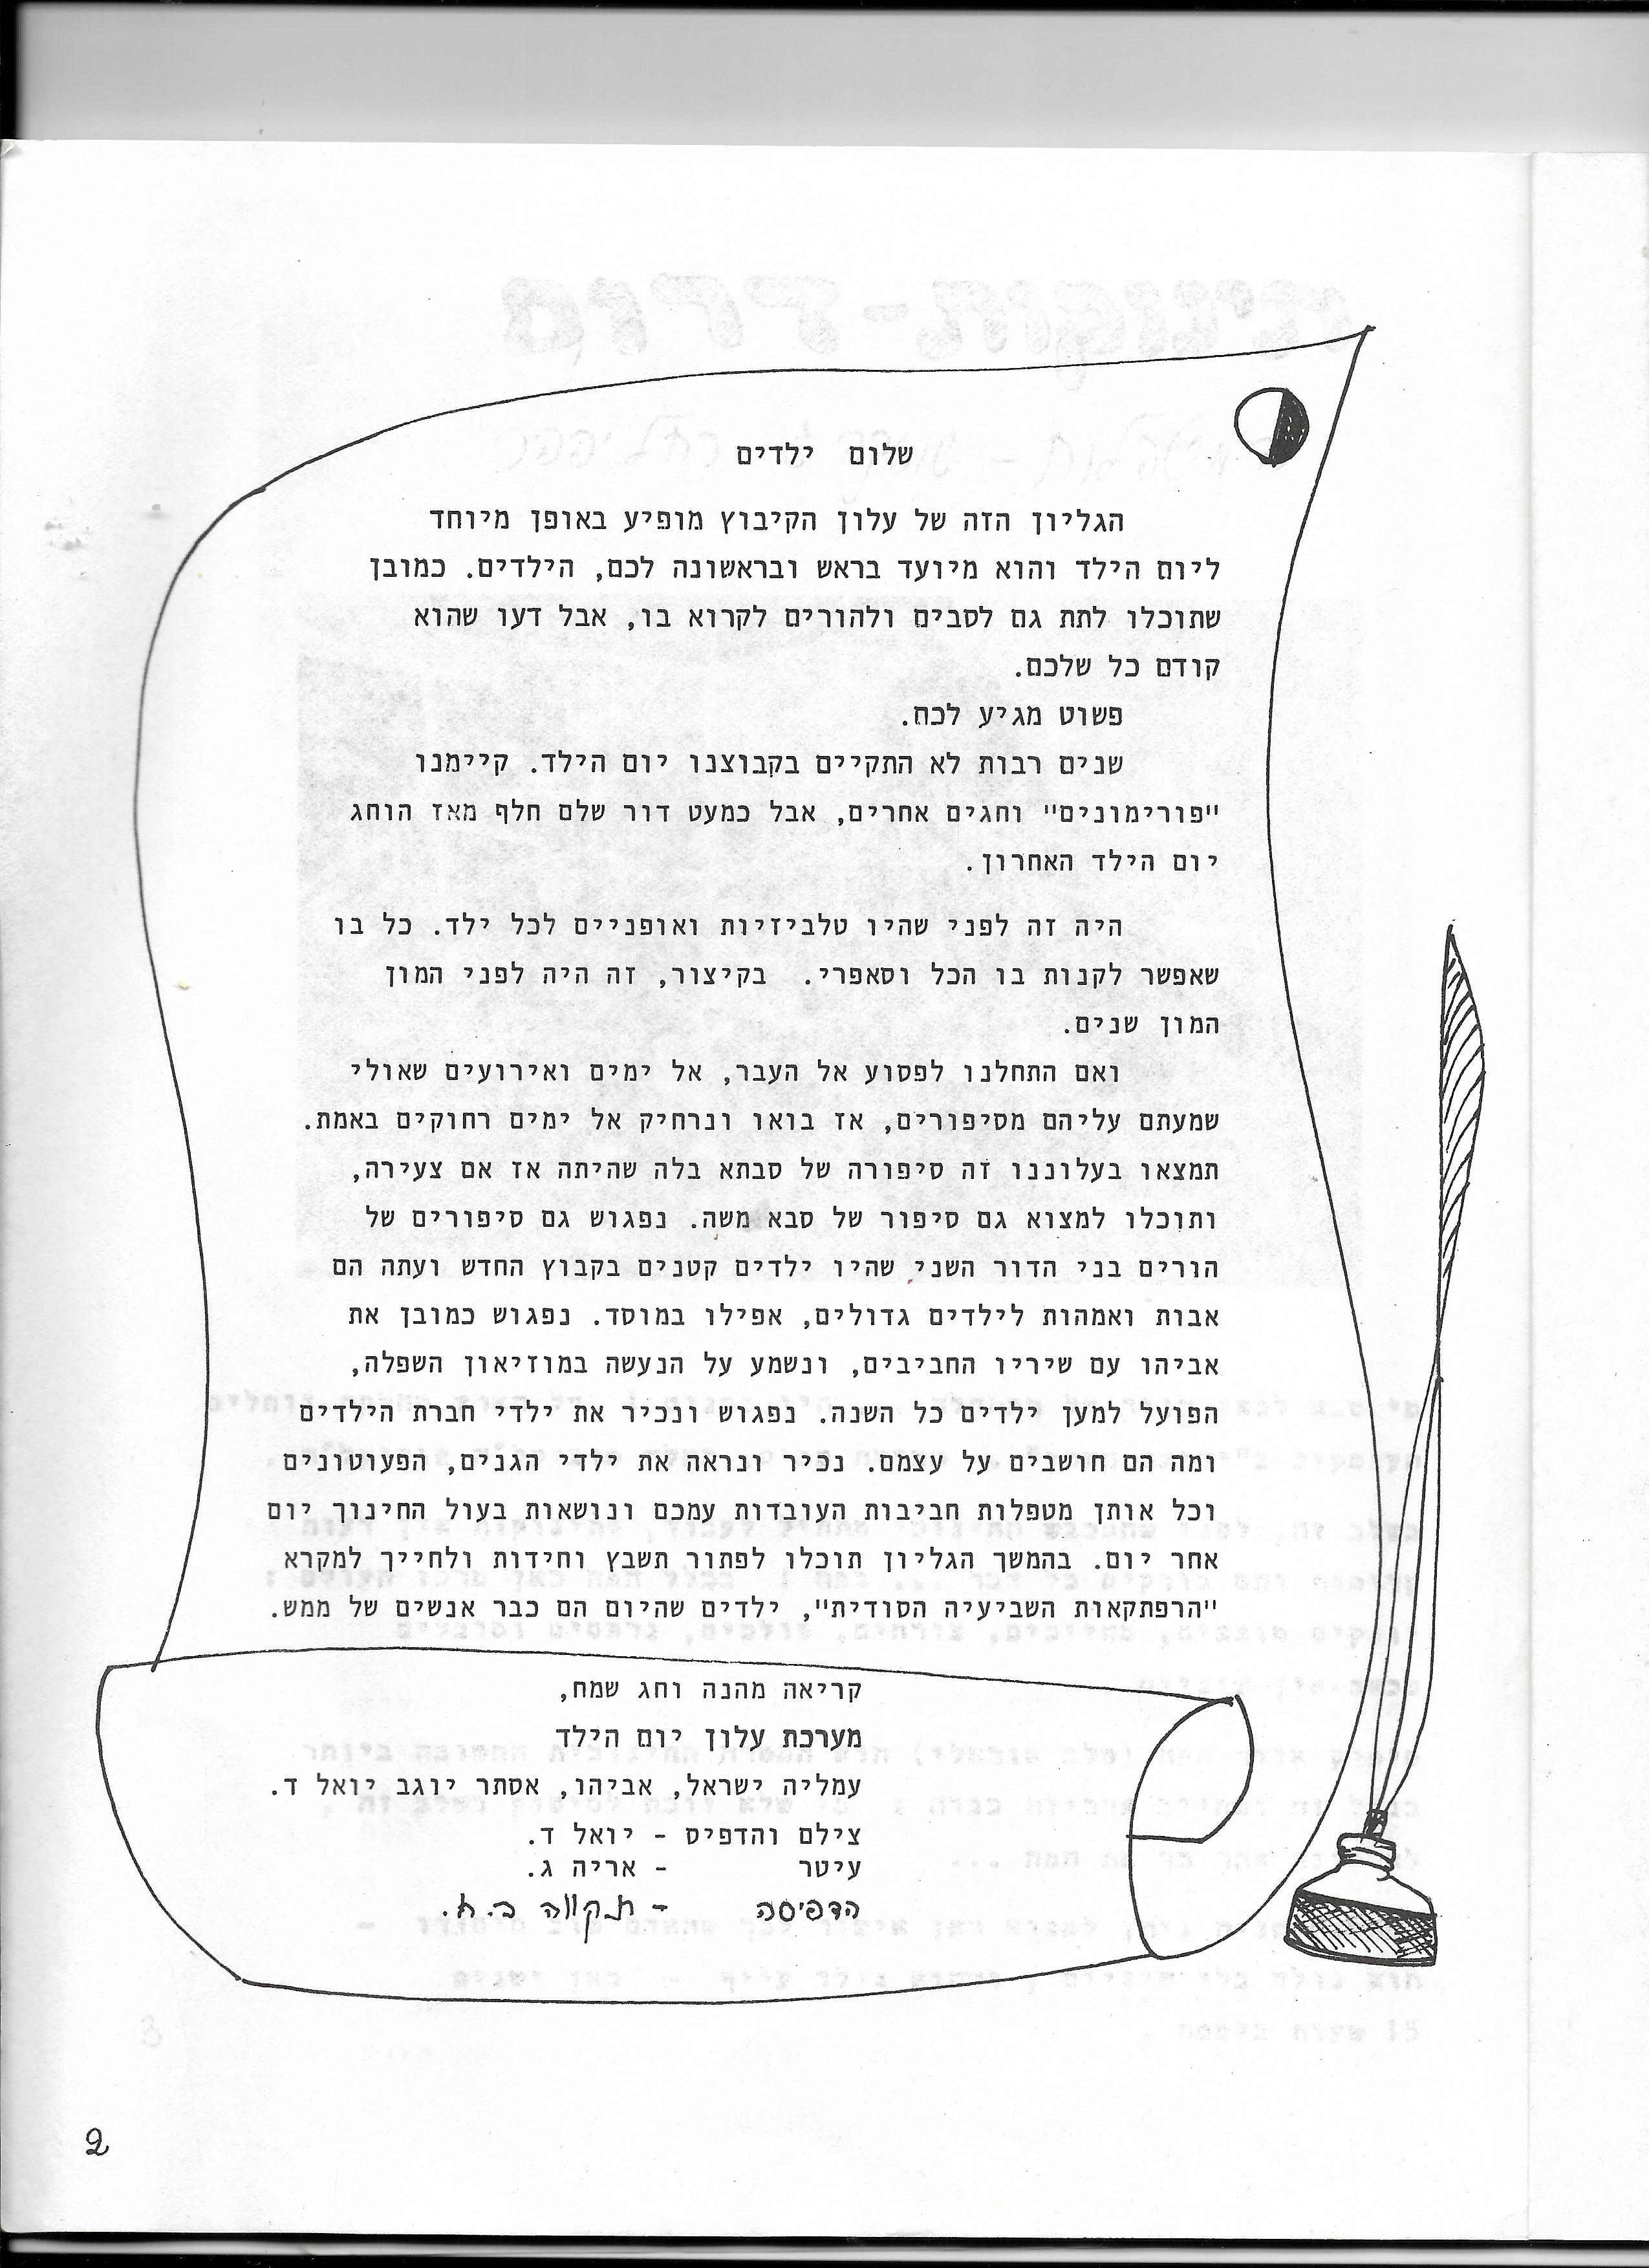 שלום ילדים
הגליון הזה של עלון הקיבוץ מופיע באופן מיוחד
ליום הילד והוא מיועד בראש ובראשונה לכם, הילדים. כמובן
שתוכלו לתת גם לסבים ולהורים לקרוא בו, אבל דעו שהוא
קודם כל שלכם.
פשוט מגיע לכם.
שנים רבות לא התקיים בקבוצנו יום הילד. קיימנו
"פורימונים" וחגים אחרים, אבל כמעט דור שלם חלף מאז הוחג
יום הילד האחרון.
היה זה לפני שהיו טלביזיות ואופניים לכל ילד. כל בו
שאפשר לקנות בו הכל וסאפרי. בקיצור, זה היה לפני המון
המון שנים.
ואם התחלנו לפסוע אל העבר, אל ימים ואירועים שאולי
שמעתם עליהם מסיפורים, אז בואו ונרחיק אל ימים רחוקים באמת.
תמצאו בעלוננו זה סיפורה של סבתא בלה שהיתה אז אם צעירה,
ותוכלו למצוא גם סיפור של סבא משה. נפגוש גם סיפורים של
הורים בני הדור השני שהיו ילדים קטנים בקבוץ החדש ועתה הם
אבות ואמהות לילדים גדולים, אפילו במוסד. נפגוש כמובן את
אביהו עם שיריו החביבים, ונשמע על הנעשה במוזיאון השפלה,
הפועל למען ילדים כל השנה. נפגוש ונכיר את ילדי חברת הילדים
ומה הם חושבים על עצמם. נכיר ונראה את ילדי הגנים, הפעוטונים
וכל אותן מטפלות חביבות העובדות עמכם ונושאות בעול החינוך יום
אחר יום. בהמשך הגליון תוכלו לפתור תשבץ וחידות ולחייך למקרא
"הרפתקאות השביעיה הסודית", ילדים שהיום הם כבר אנשים של ממש.
קריאה מהנה וחג שמח,
מערכת עלון יום הילד
עמליה ישראל, אביהו, אסתר יוגב יואל ד.
צילם והדפיס - יואל ד.
עיטר - אריה ג.
הדפיסה - תקווה ב.א.
2